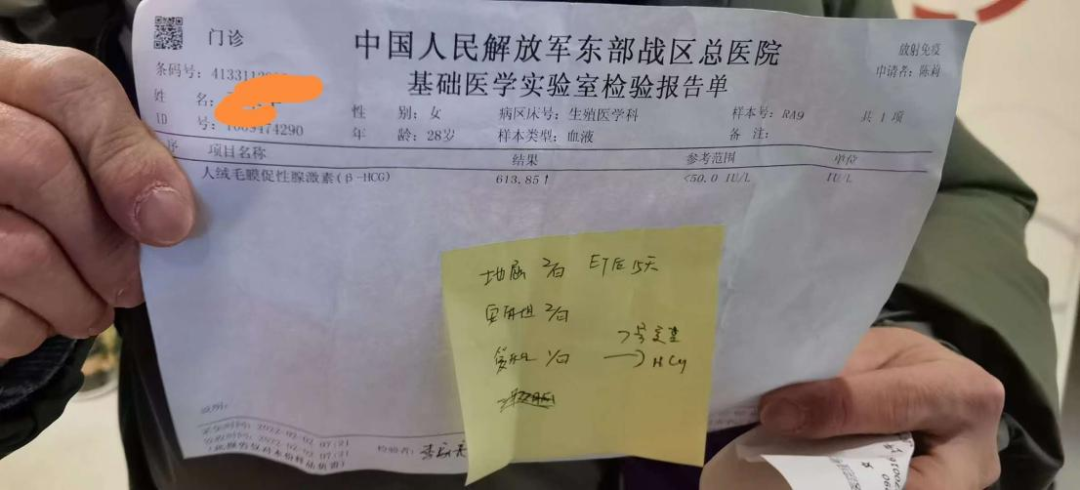 门诊
中国人民解放军东部战区总医院
放射免疫
条码号：4133112
基础医学实验室检验报告单
申请者：陈莉
姓 名：
性 别：女 病区床号：生殖医学科 样本号：RA9 共 1 项
ID 号：1009474290
年 龄：28岁 样本类型：血液 备 注：
项目名称 结果 参考范围 单位
人绒毛膜促性腺激素(β-HCG) 613.85↑ <50.0 IU/L IU/L
地屈 2/日 ET后 15天
2/日
1/日 → 7号 HCG
说明：
采集时间：2022-02-02 07:21
接收时间：2022-02-02 07:21
检验者：
(此报告仅对本份样品负责)